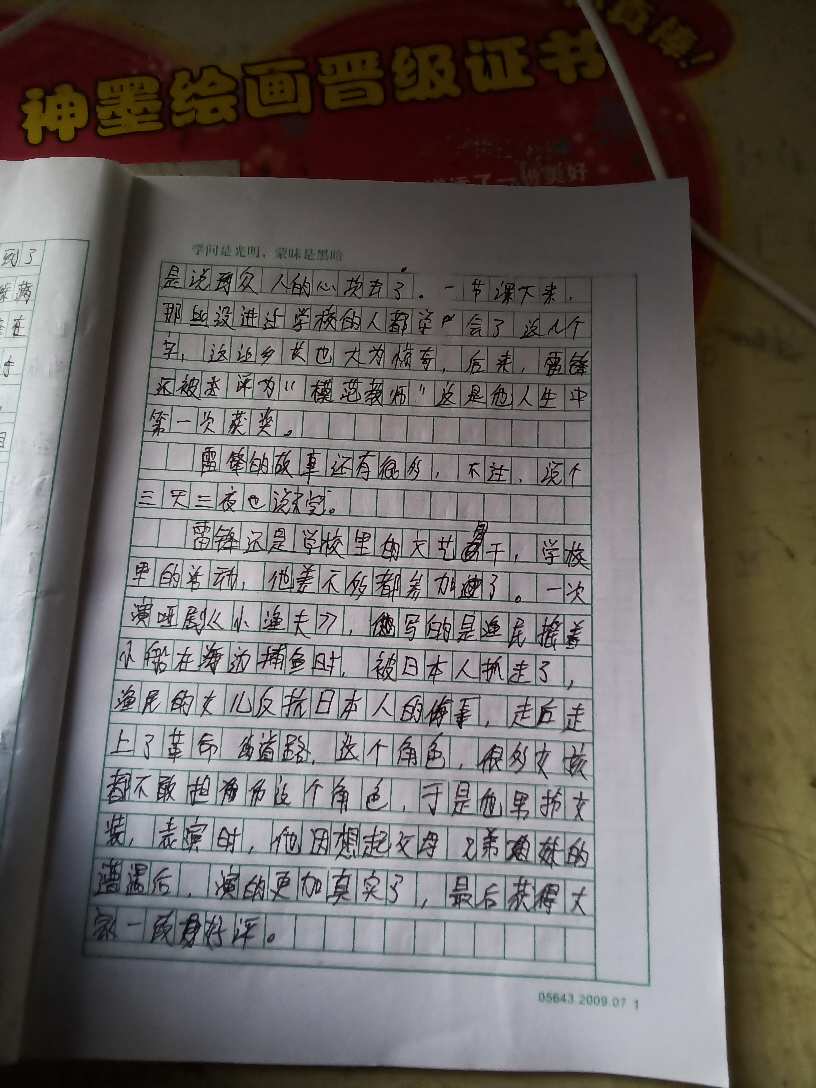 神墨绘画晋级证书
真棒!
美好
学问是光明、蒙昧是黑暗
到了
在
是说到众人的心坎去了。一节课下来,
那些没进过学校的人都学会了这几个
字,这让乡长也大为惊奇,后来,雷锋
还被评为“模范教师”这是他人生中
第一次获奖。
雷锋的故事还有很多,不过,说个
三天三夜也说不完。
雷锋还是学校里的文艺骨干,学校
里的活动,他差不多都参加了。一次
演哑剧《小渔夫》,写的是渔民摇着
小船在海边捕鱼时,被日本人抓走了,
渔民的女儿反抗日本人的侮辱,走后走
上了革命的道路,这个角色,很多女孩
都不敢担任这个角色,于是他男扮女
装,表演时,他因想起父母兄弟姐妹的
遭遇后,演的更加真实了,最后获得大
家一致好评。
05643.2009.07 1